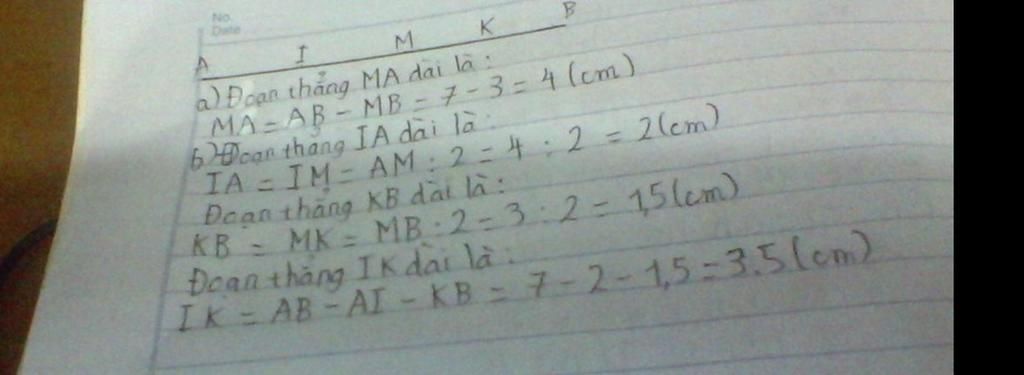 No.
Date
A I M K B
a) Đoạn thẳng MA dài là:
MA = AB - MB = 7 - 3 = 4 (cm)
b) Đoạn thẳng IA dài là:
IA = IM = AM : 2 = 4 : 2 = 2 (cm)
Đoạn thẳng KB dài là:
KB = MK = MB : 2 = 3 : 2 = 1,5 (cm)
Đoạn thẳng IK dài là:
IK = AB - AI - KB = 7 - 2 - 1,5 = 3.5 (cm)